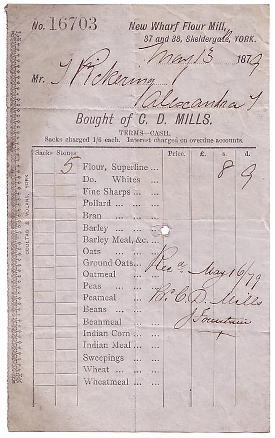 No. 16703
New Wharf Flour Mill,
37 and 38, Skeldergate, YORK.
May 13 1879
Mr. J Pickering
Alexandra T
Bought of C. D. MILLS.
TERMS—CASH.
Sacks charged 1/6 each. Interest charged on overdue accounts.
Sacks Stones Price. £. s. d.
5 Flour, Superfine ... 8 9
Do. Whites ...
Fine Sharps ... ...
Pollard ... ...
Bran ... ...
Barley ... ...
Barley Meal, &c. ...
Oats ... ...
Ground Oats ...
Oatmeal ...
Peas ... ...
Peameal ...
Beans ... ...
Beanmeal ...
Indian Corn ...
Indian Meal ...
Sweepings ...
Wheat ... ...
Wheatmeal ...
Recd. May 16/79
Pr C. D. Mills
J Fountain